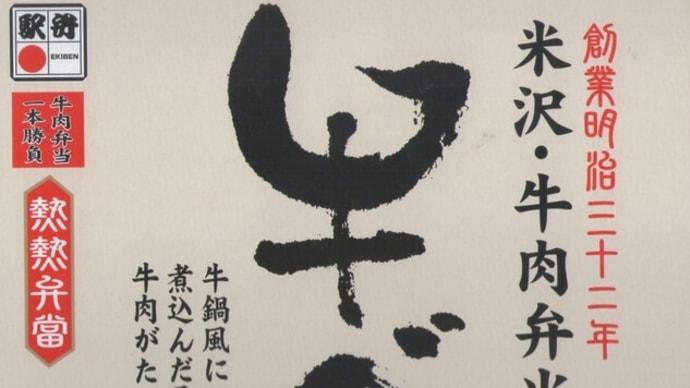 創業明治三十二年
米沢・牛肉弁当
牛
牛鍋風に
煮込んだ
牛肉がた
駅弁
EKIBEN
牛肉弁当
一本勝負
熱熱弁當